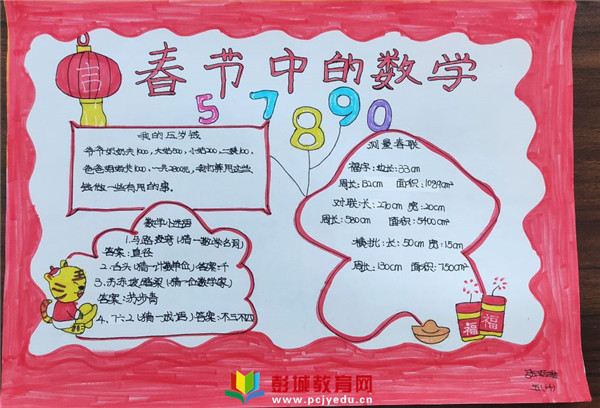 春节中的数学
5 7 8 9 0
我的压岁钱
爷爷奶奶共1000，大奶500，小奶200，二姨100，
爸爸妈妈共1000，一共2800元，我打算用这些
钱做一些有用的事。
数学小迷语
1.马路没弯（猜一数学名词）
答案：直径
2.舌头（猜一计数单位）答案：千
答案：苏步青
4、7六2（猜一成语）答案：不三不四
测量春联
福字：边长：33cm
周长：132cm 面积：1089cm²
对联：长：270cm 宽：20cm
周长：580cm 面积：5400cm²
横批：长：50cm 宽：15cm
周长：130cm 面积：750cm²
福
福
彭城教育网
www.pcjyedu.cn